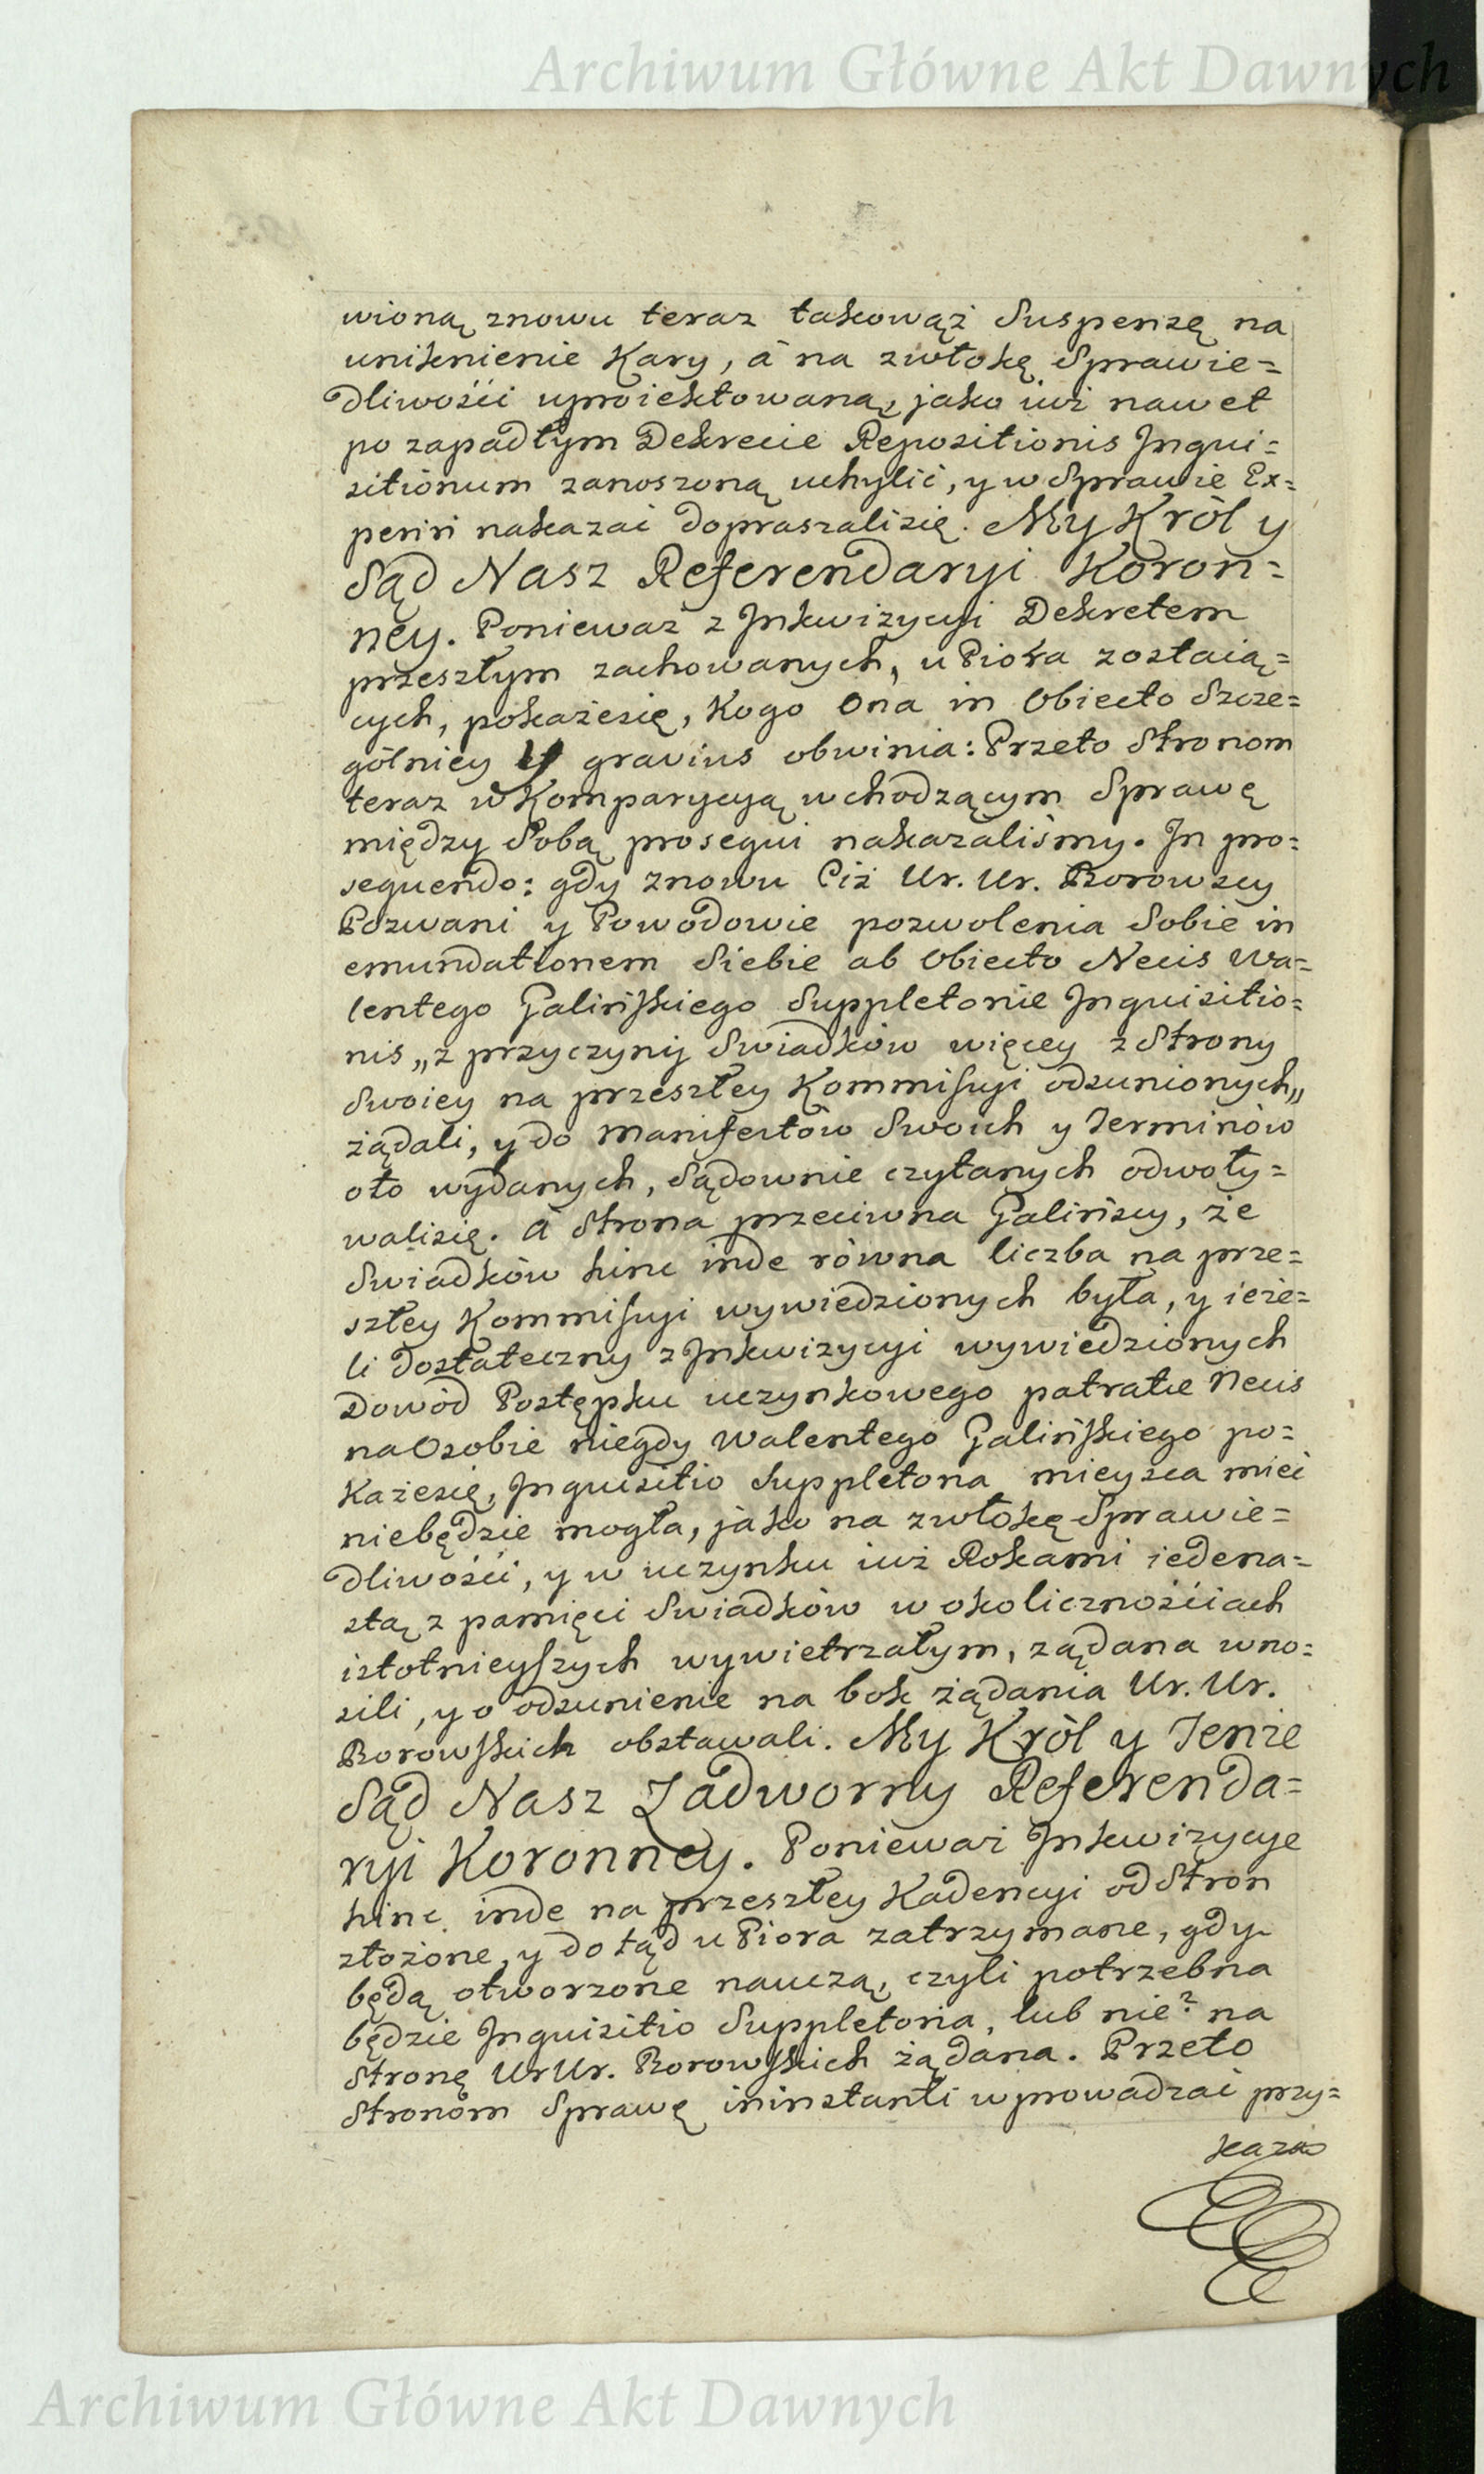 Archiwum Główne Akt Dawnych
wioną znowu teraz takowąż Suspensę na
uniknienie Kary, á na zwłokę Sprawie=
dliwości uproiektowaną, jako iuż nawet
po zapadłym Dekrecie Repositionis Inqui=
sitionum zanoszoną uchylić, y w Sprawie Ex=
periri nakazać dopraszalisię. My Król y
Sąd Nasz Referendaryi Koron=
ney. Ponieważ z Inkwizycyi Dekretem
przeszłym zachowanych, u Pióra zostaią=
cych, pokażesię, Kogo Ona in Obiecto Szcze=
gólniey y gravius obwinia: Przeto Stronom
teraz w Komparycyą wchodzącym Sprawę
między Sobą prosequi nakazaliśmy. In pro=
sequendo: gdy znowu Ciż Ur. Ur. Borowscy
Pozwani y Powodowie pozwolenia Sobie in
emundationem Siebie ab Obiecto Necis Wa=
lentego Galińskiego Suppletoriæ Inquisitio=
nis „z przyczyny Swiadków więcey z Strony
Swoiey na przeszłey Kommissyi odsunionych„
żądali, y do Manifestów Swoich y Terminów
oto wydanych, Sądownie czytanych odwoły=
walisię. A Strona przeciwna Galińscy, że
Swiadków hinc inde równa liczba na prze=
szłey Kommissyi wywiedzionych była, y ieże=
li dostateczny z Inkwizycyi wywiedzionych
Dowód Postępku uczynkowego patratæ Necis
na Osobie niegdy Walentego Galińskiego po=
każesię, Inquisitio Suppletoria mieysca mieć
niebędzie mogła, jako na zwłokę Sprawie=
dliwości, y w uczynku iuż Rokami iedena=
stą z pamięci Swiadków w okolicznościach
istotnieyszych wywietrzałym, żądana wno=
sili, y o odsunienie na bok żądania Ur. Ur.
Borowskich obstawali. My Król y Tenże
Sąd Nasz Zadworny Referenda=
ryi Koronney. Ponieważ Inkwizycye
hinc inde na przeszłey Kadencyi od Stron
złożone, y dotąd u Pióra zatrzymane, gdy
będą otworzone nauczą, czyli potrzebna
będzie Inquisitio Suppletoria, lub nie? na
Stronę Ur Ur. Borowskich żądana. Przeto
Stronom Sprawę ininstanti wprowadzać przy=
kaza
Archiwum Główne Akt Dawnych